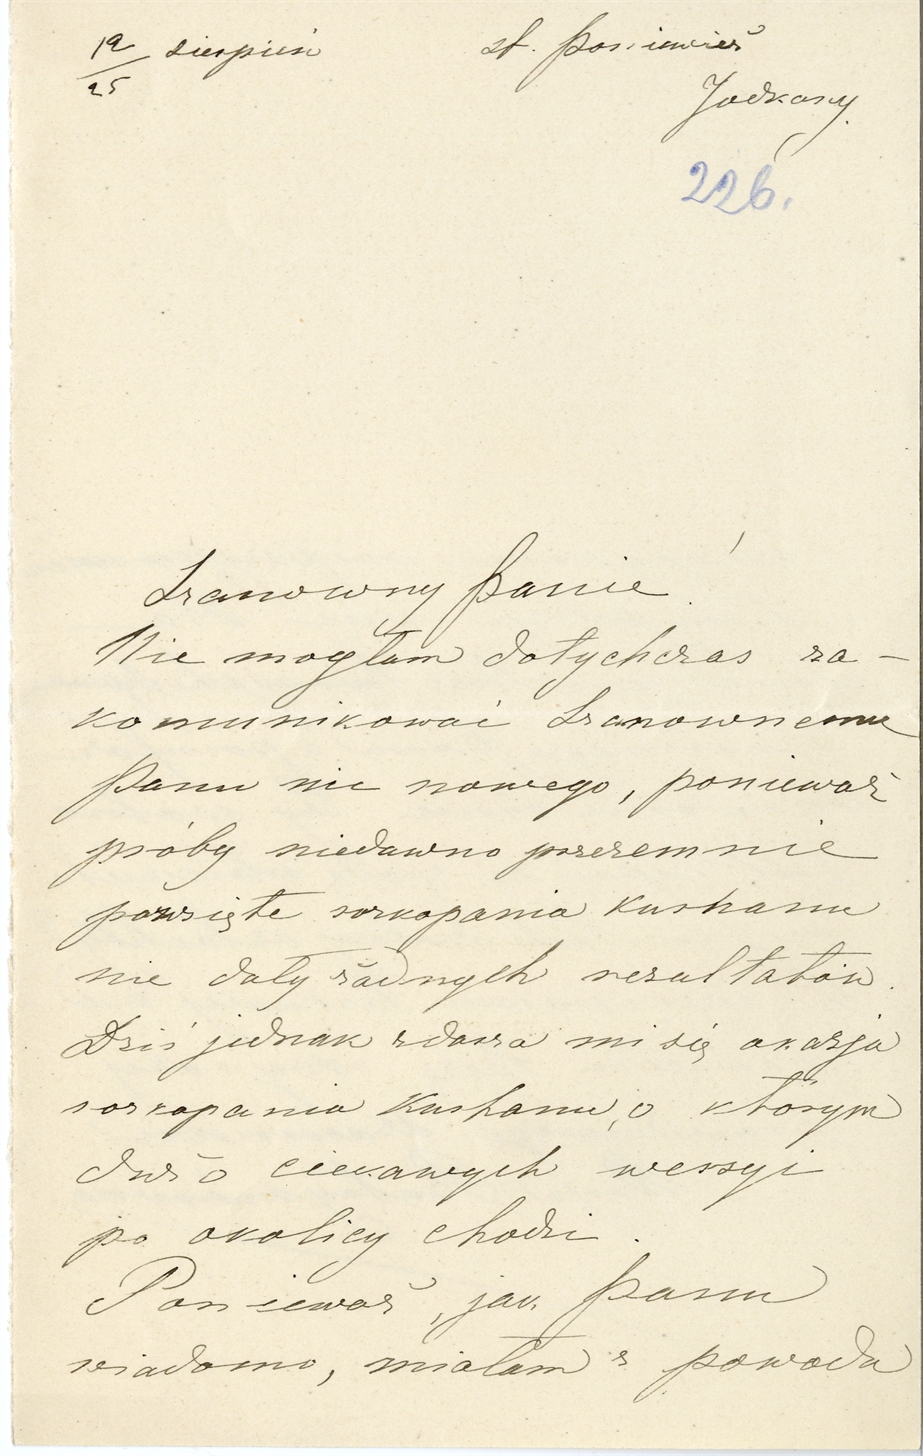 19/25 sierpień st. Poniewież
Jodkany.
226.
Szanowny Panie!
Nie mogłam dotychczas za-
komunikować Szanownemu
Panu nic nowego, ponieważ
próby niedawno przezemnie
powzięte rozkopania kurhanu
nie dały żadnych rezultatów.
Dziś jednak zdarza mi się okazja
rozkopania kurhanu, o którym
dużo ciekawych wersyi
po okolicy chodzi.
Ponieważ, jak Panu
wiadomo, miałam z powodu